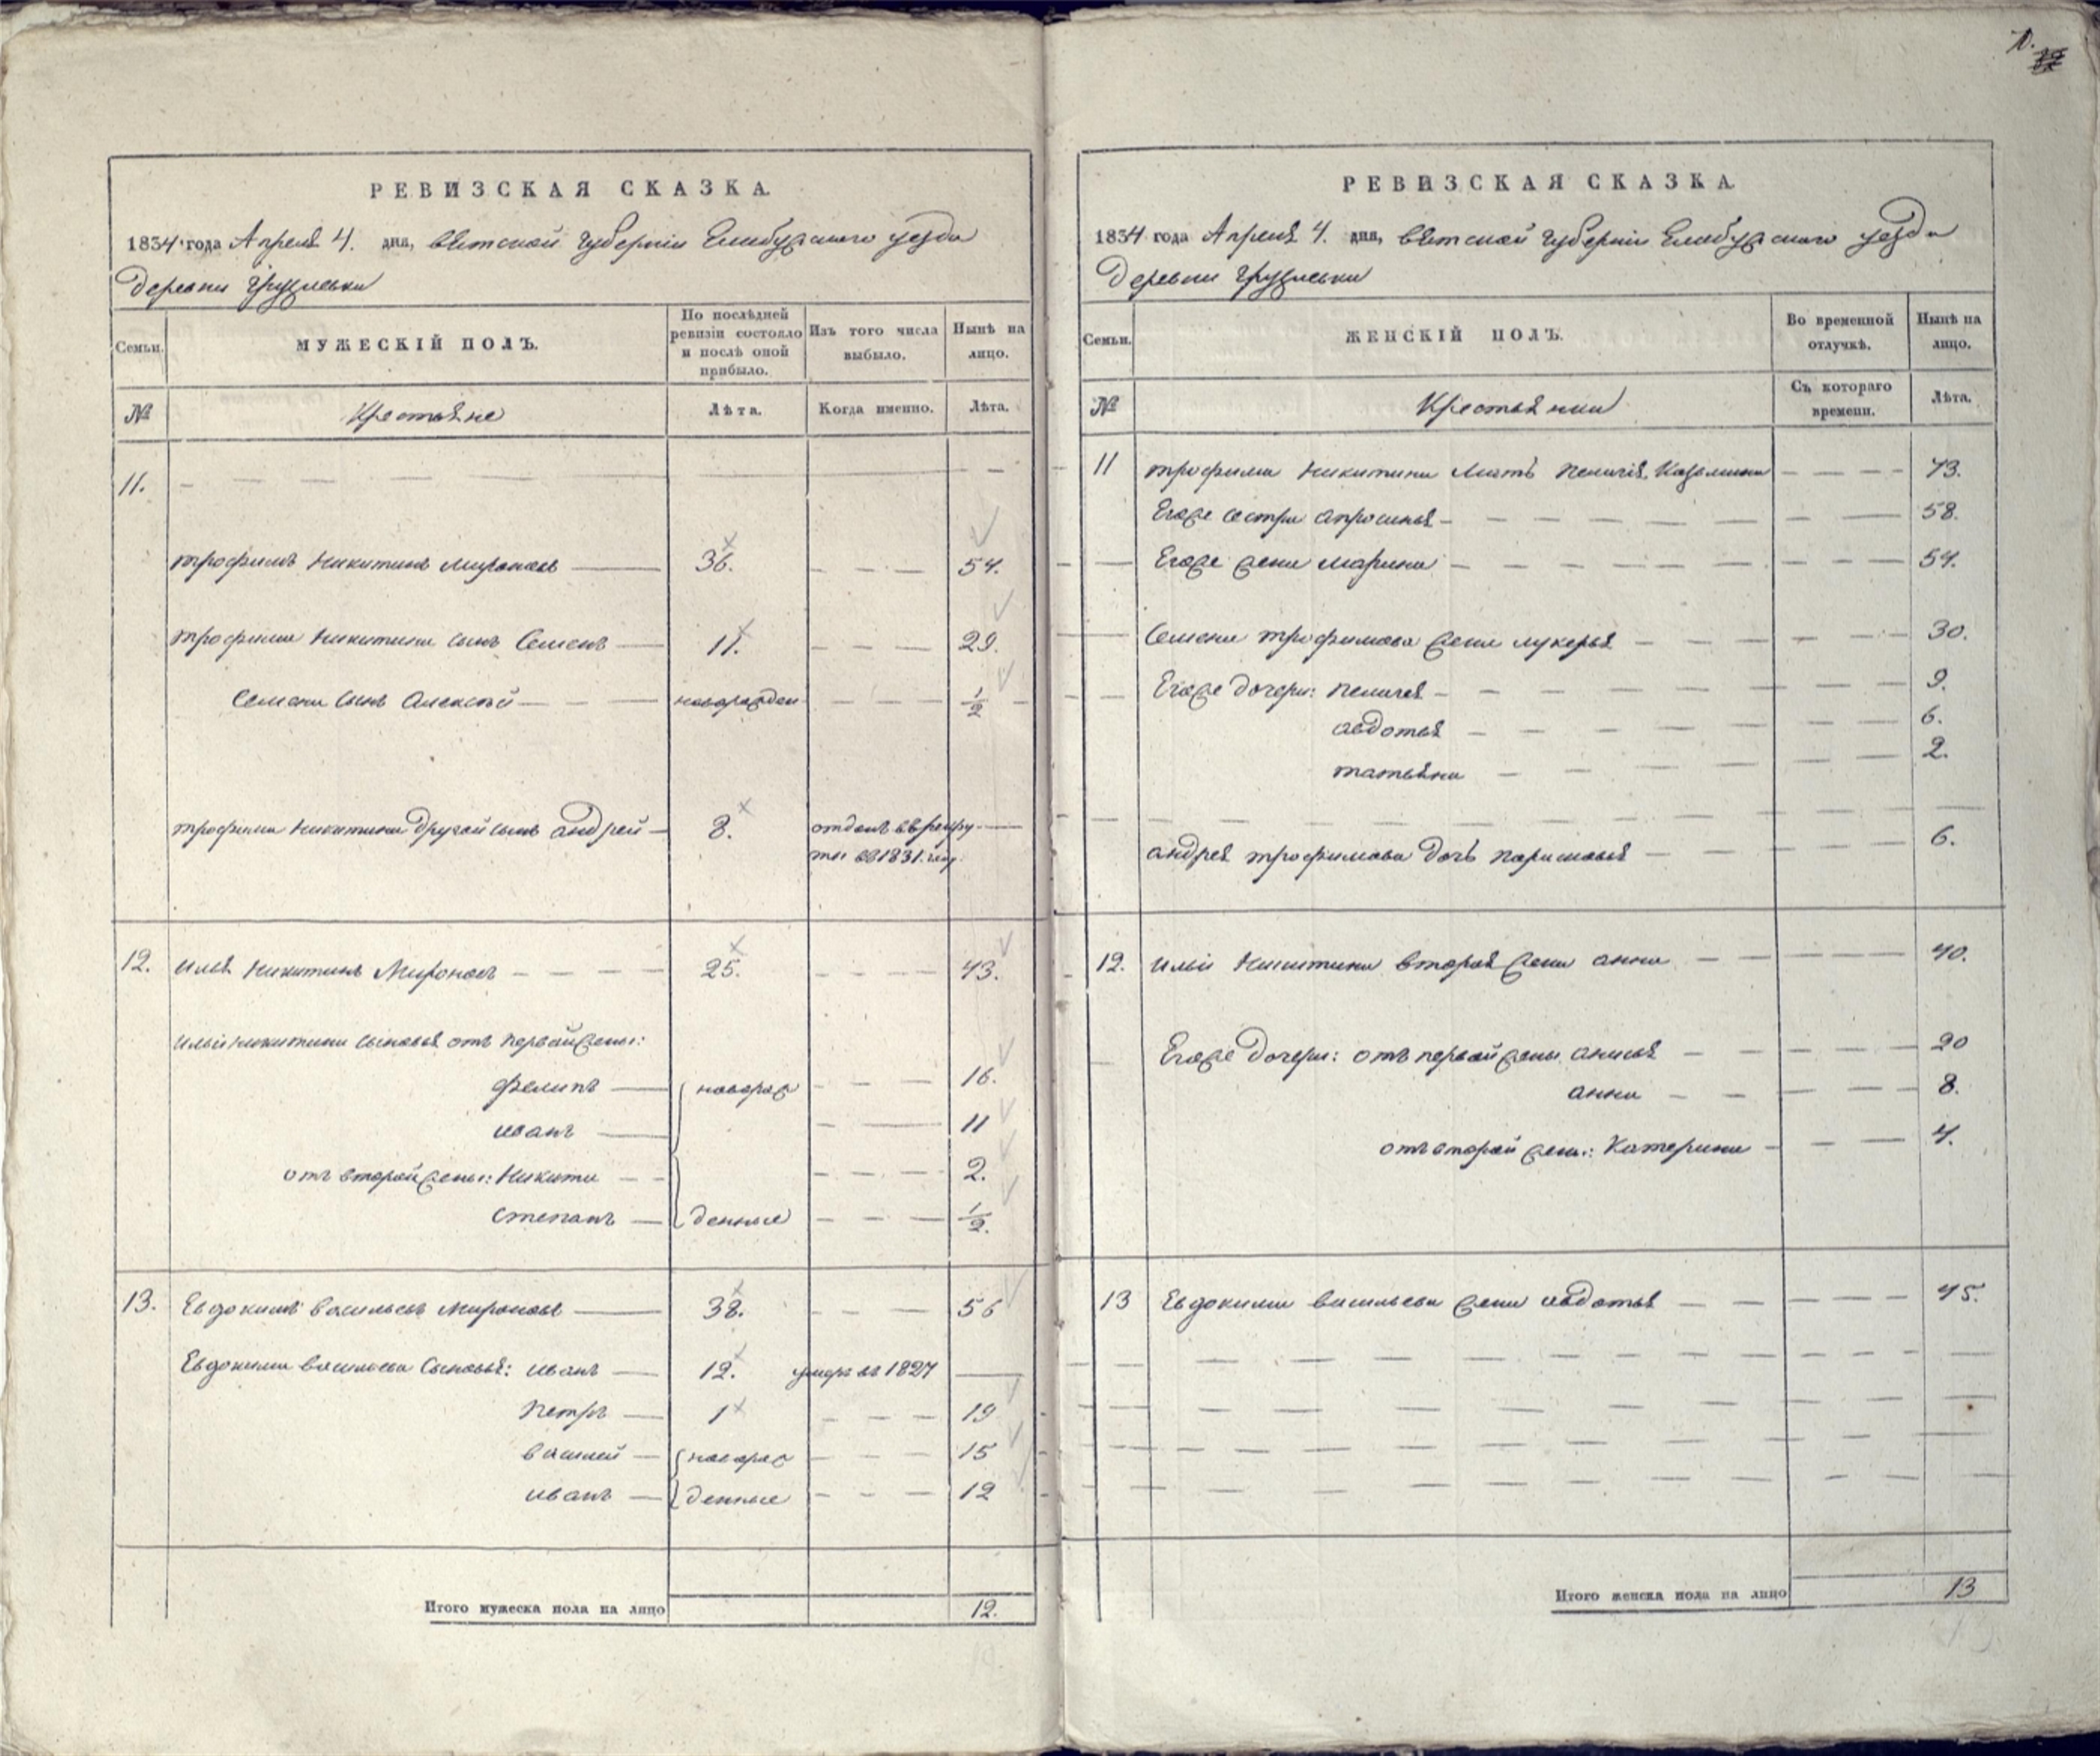 РЕВИЗСКАЯ СКАЗКА.
1834 года Апреля 4. дня, Вятской Губернии Елабужского уезда
деревни Грузлевки
Семьи.
МУЖЕСКІЙ ПОЛЪ.
По послѣдней ревизіи состояло и послѣ оной прибыло.
Изъ того числа выбыло.
Нынѣ на лицо.
№
Крестьяне
Лѣта.
Когда именно.
Лѣта.
11.
трофимъ Никитинъ Мироновъ 36. 54.
трофима Никитина сынъ Семенъ 11. 29.
Семена сынъ Алексей новорожден 1/2
трофима Никитина другой сынъ андрей 8. отданъ въ рекру
ты въ 1831. году
12. илья Никитинъ Мироновъ 25. 43.
ильи Никитина сыновья отъ первой жены:
Филипъ новорож 16.
иванъ 11
отъ второй жены: Никита 2.
степанъ денные 1/2.
13. Евдокимъ васильевъ Мироновъ 38. 56
Евдокима васильева Сыновья: иванъ 12. умеръ въ 1827
Петръ 1 19
василей новорож 15
иванъ денные 12
Итого мужеска пола на лицо 12.
РЕВИЗСКАЯ СКАЗКА.
1834 года Апреля 4. дня, Вятской Губернии Елабужского уезда
деревни Грузлевки
Семьи.
ЖЕНСКІЙ ПОЛЪ.
Во временной отлучкѣ.
Нынѣ на лицо.
№
Крестьянки
Съ котораго времени.
Лѣта.
11 трофима Никитина Мать Пелагія Козьмина 73.
Егоже сестра апросинья 58.
Егоже жена марина 54.
Семена трофимова жена лукерья 30.
Егоже дочери: пелагея 9.
авдотья 6.
татьяна 2.
андрея трофимова дочь парасковья 6.
12. ильи Никитина вторая жена анна 40.
Егоже дочери: отъ первой жены анисья 20
анна 8.
отъ второй жены: Катерина 4.
13 Евдокима васильева жена авдотья 45.
Итого женска пола на лицо 13